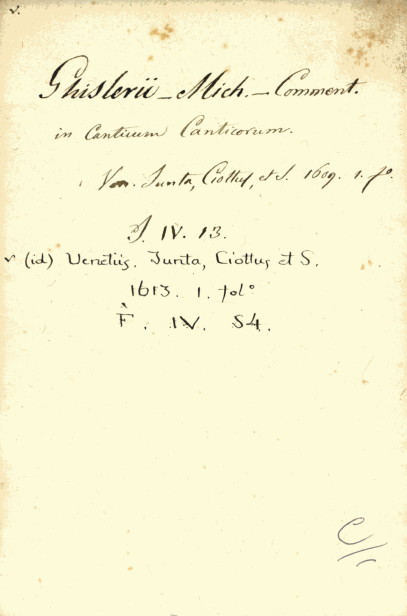 v.
Ghislerii - Mich. - Comment.
in Canticum Canticorum.
Ven. Junta, Ciottus, et S. 1609. 1. fº.
J. IV. 13.
v (id) Venetiis. Junta, Ciottus et S.
1613. 1. folº
F. IV. 54.
C